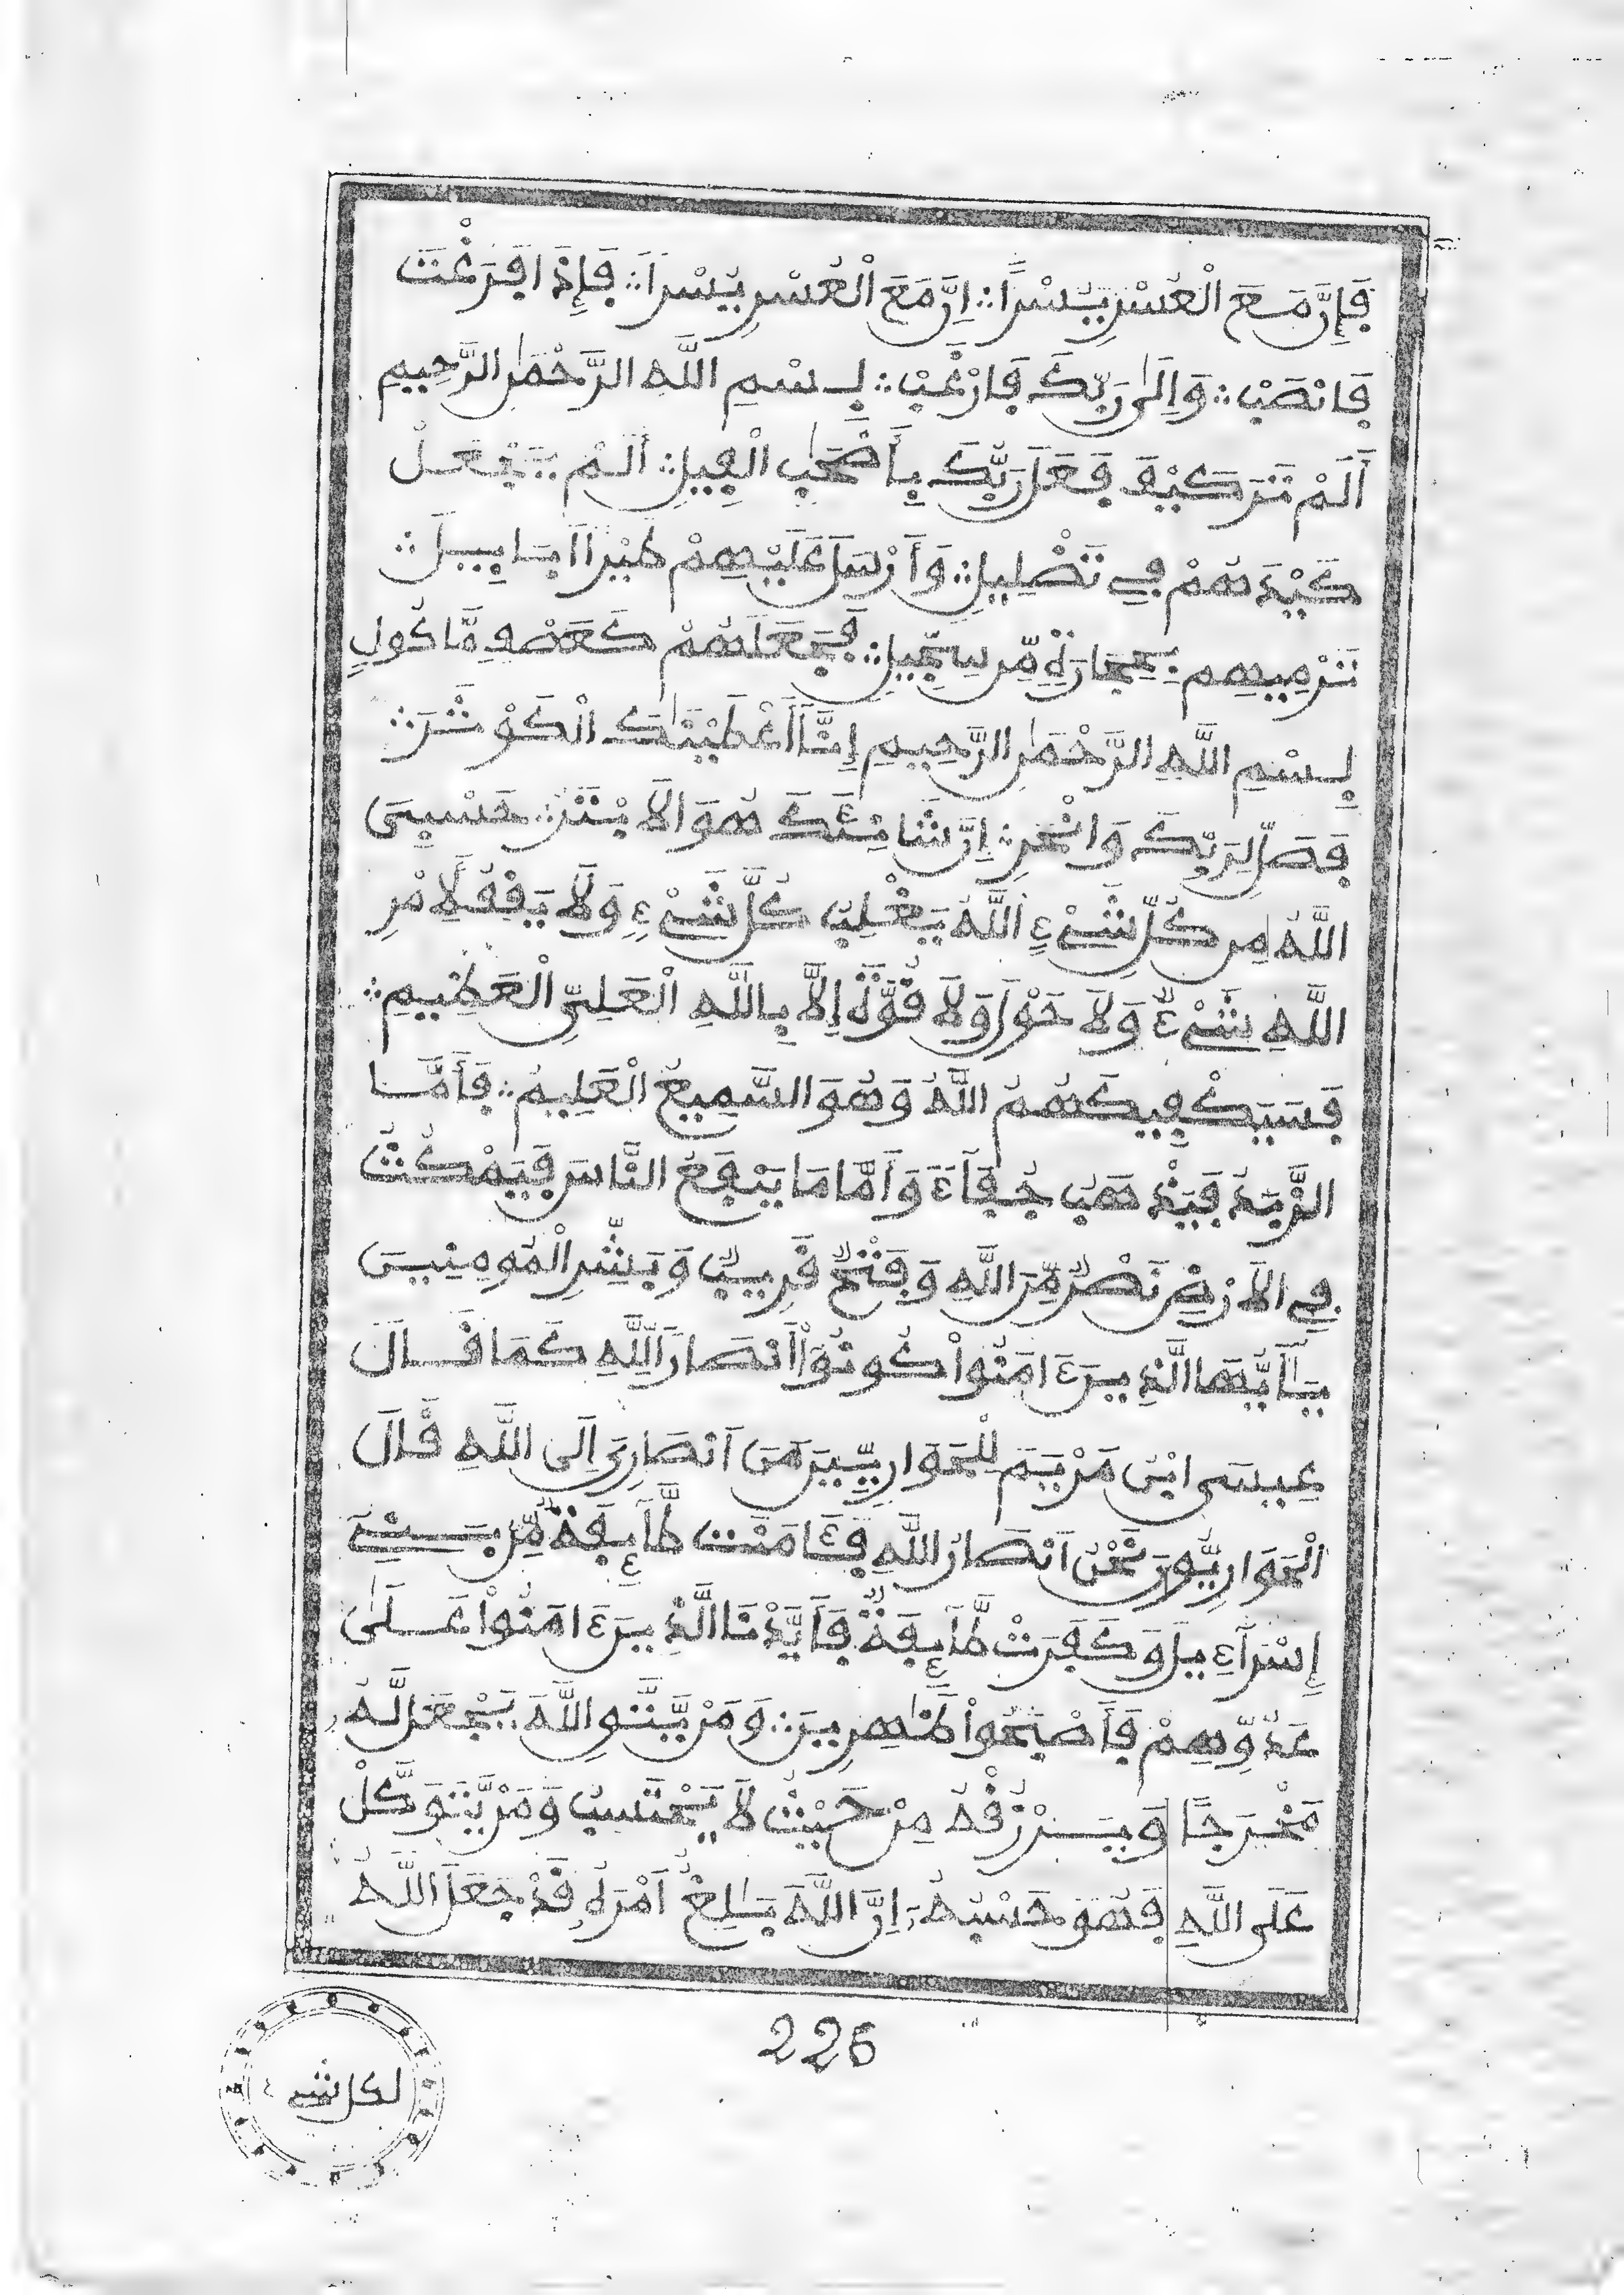 فَإِنَّ مَعَ الْعُسْرِ يُسْرًا ؞ اِنَّ مَعَ الْعُسْرِ يُسْرًا ؞ فَإِذَا فَرَغْتَ
فَانْصَبْ ؞ وَإِلَىٰ رَبِّكَ فَارْغَبْ ؞ بِسْمِ اللَّهِ الرَّحْمَٰنِ الرَّحِيمِ
أَلَمْ تَرَ كَيْفَ فَعَلَ رَبُّكَ بِأَصْحَٰبِ الْفِيلِ ؞ أَلَمْ يَجْعَلْ
كَيْدَهُمْ فِي تَضْلِيلٍ ؞ وَأَرْسَلَ عَلَيْهِمْ طَيْرًا أَبَابِيلَ ؞
تَرْمِيهِم بِحِجَارَةٍ مِّن سِجِّيلٍ ؞ فَجَعَلَهُمْ كَعَصْفٍ مَّاكُولٍ
بِسْمِ اللَّهِ الرَّحْمَٰنِ الرَّحِيمِ إِنَّا أَعْطَيْنَٰكَ الْكَوْثَرَ ؞
فَصَلِّ لِرَبِّكَ وَانْحَرْ ؞ اِنَّ شَانِئَكَ هُوَ الَابْتَرُ ؞ حَسْبِيَ
اللَّهُ مِن كُلِّ شَيْءٍ اللَّهُ يَغْلِبُ كُلَّ شَيْءٍ وَلَا يَقِفُ لِأَمْرِ
اللَّهِ شَيْءٌ وَلَا حَوْلَ وَلَا قُوَّةَ إِلَّا بِاللَّهِ الْعَلِيِّ الْعَظِيمِ ؞
فَسَيَكْفِيكَهُمُ اللَّهُ وَهُوَ السَّمِيعُ الْعَلِيمُ ؞ فَأَمَّا
الزَّبَدُ فَيَذْهَبُ جُفَآءً وَأَمَّا مَا يَنْفَعُ النَّاسَ فَيَمْكُثُ
فِي الَارْضِ نَصْرٌ مِّنَ اللَّهِ وَفَتْحٌ قَرِيبٌ وَبَشِّرِ الْمُومِنِينَ
يَٰأَيُّهَا الَّذِينَ ءَامَنُواْ كُونُواْ أَنْصَارًا لِلَّهِ كَمَا قَالَ
عِيسَى ابْنُ مَرْيَمَ لِلْحَوَارِيِّينَ مَنَ اَنْصَارِيَ إِلَى اللَّهِ قَالَ
الْحَوَارِيُّونَ نَحْنُ أَنْصَارُ اللَّهِ فَـَٔامَنَت طَّآئِفَةٌ مِّن بَنِي
إِسْرَآءِيلَ وَكَفَرَت طَّآئِفَةٌ فَأَيَّدْنَا الَّذِينَ ءَامَنُواْ عَلَىٰ
عَدُوِّهِمْ فَأَصْبَحُواْ ظَٰهِرِينَ ؞ وَمَنْ يَّتَّقِ اللَّهَ يَجْعَل لَّهُ
مَخْرَجًا وَيَرْزُقْهُ مِنْ حَيْثُ لَا يَحْتَسِبُ وَمَنْ يَّتَوَكَّلْ
عَلَى اللَّهِ فَهُوَ حَسْبُهُ إِنَّ اللَّهَ بَٰلِغٌ أَمْرَهُ قَدْ جَعَلَ اللَّهُ
226
لكل شيء